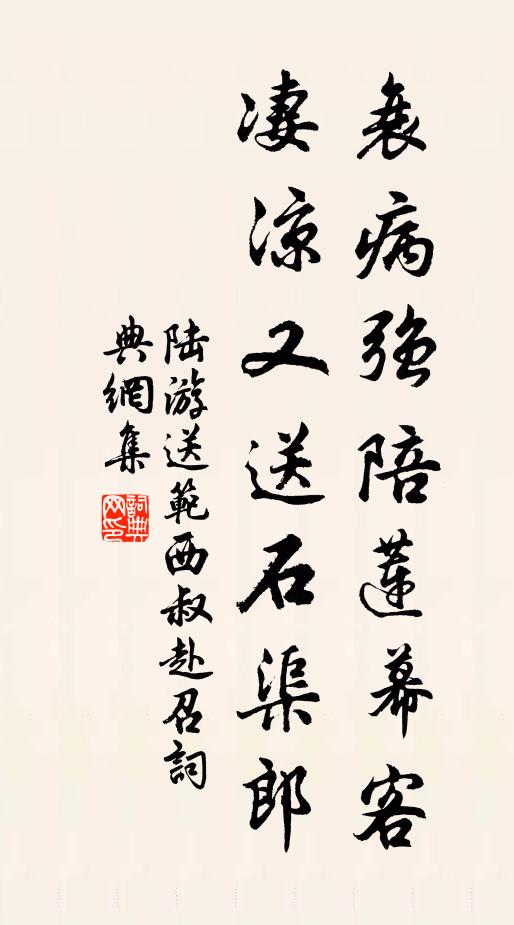 衰病強陪蓮幕客
凄涼又送石渠郎
陆游送範西叔赴召詞
典網集
詞典网印